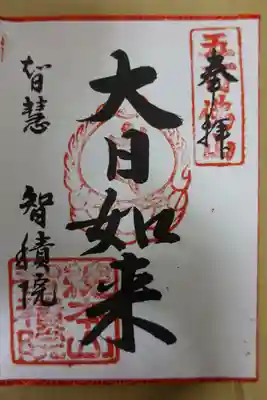 奉拝
大日如来
智慧
智積院